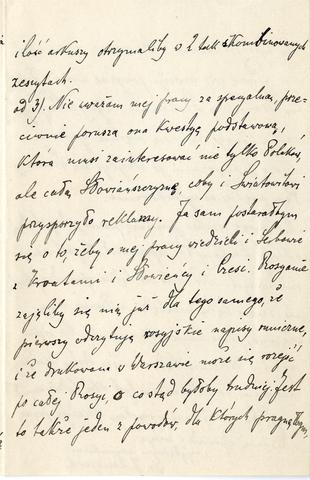 ilość arkuszy otrzymaliby w 2 tak skombinowanych
zeszytach.
od 3). Nie uważam mej pracy za specyalną, prze-
ciwnie porusza ona kwestyę podstawową,
która musi zainteresować nie tylko Polskę,
ale całą Słowiańszczyznę, coby i Światowitowi
przysporzyło reklamy. Ja sam postarałbym
się o to, żeby o mej pracy wiedzieli i Serbowie
z Kroatami i Słowieńcy i Czesi. Rosyanie
zajęliby się nią już dla tego samego, że
pierwszy odczytuję rosyjskie napisy runiczne,
i że drukowana w Warszawie może się rozejść
po całej Rosyi, o co stąd byłoby trudniej. Jest
to także jeden z powodów, dla których pragnąłbym,